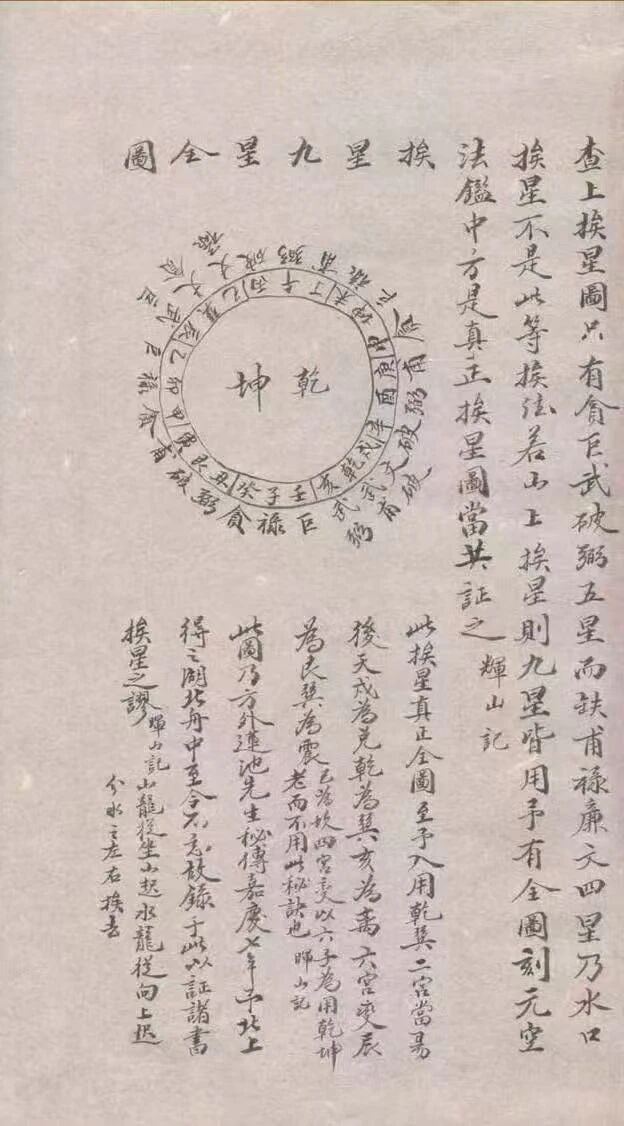 查上挨星圖只有貪巨武破弼五星而缺甫祿廉文四星乃水口
挨星不是此等挨法若山上挨星則九星皆用予有全圖刻元空
法鑑中方是真正挨星圖當共証之
輝山記
挨星九星全圖
乾坤
壬子癸
丑艮寅
甲卯乙
辰巽巳
丙午丁
未坤申
庚酉辛
戌乾亥
巨祿貪
弼破甫
此挨星真正全圖至予入用乾巽二宮當易
後天戌為兌乾為巽亥為离六宮變辰
為艮巽為震
巳為坎四宮变以六子為用乾坤
老而不用此秘訣也 暉山記
此圖乃方外蓮池先生秘傳嘉慶七年予北上
得之湖北舟中至今不忘故錄于此以証諸書
挨星之謬 暉山記
山龍從坐山起水龍從向上起
分水之左右挨去